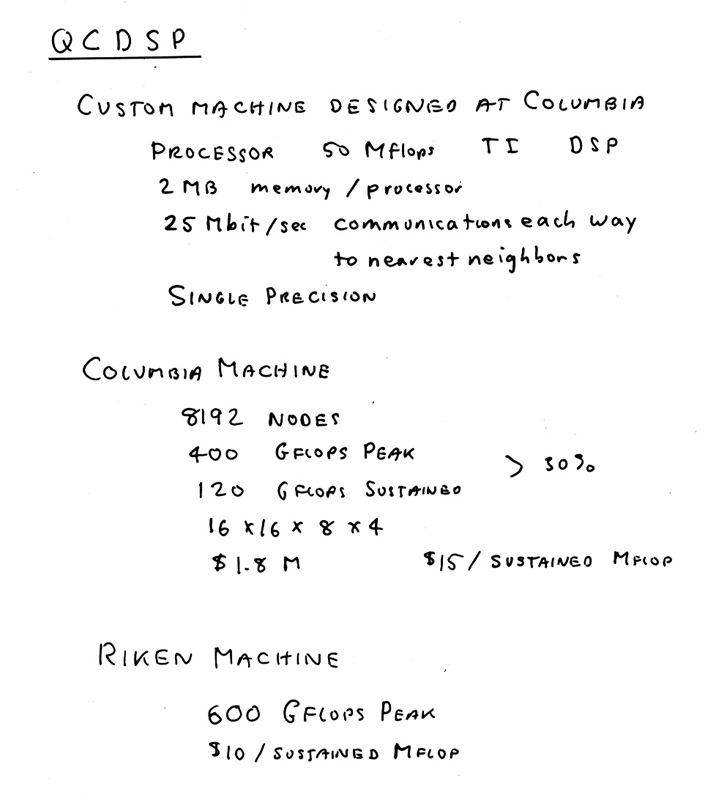 QCDSP
CUSTOM MACHINE DESIGNED AT COLUMBIA
PROCESSOR 50 Mflops TI DSP
2 MB memory / processor
25 Mbit/sec communications each way
to nearest neighbors
SINGLE PRECISION
COLUMBIA MACHINE
8192 NODES
400 GFLOPS PEAK
> 30%
120 GFLOPS SUSTAINED
16 x 16 x 8 x 4
$1.8 M $15 / SUSTAINED MFLOP
RIKEN MACHINE
600 GFLOPS PEAK
$10 / SUSTAINED MFLOP